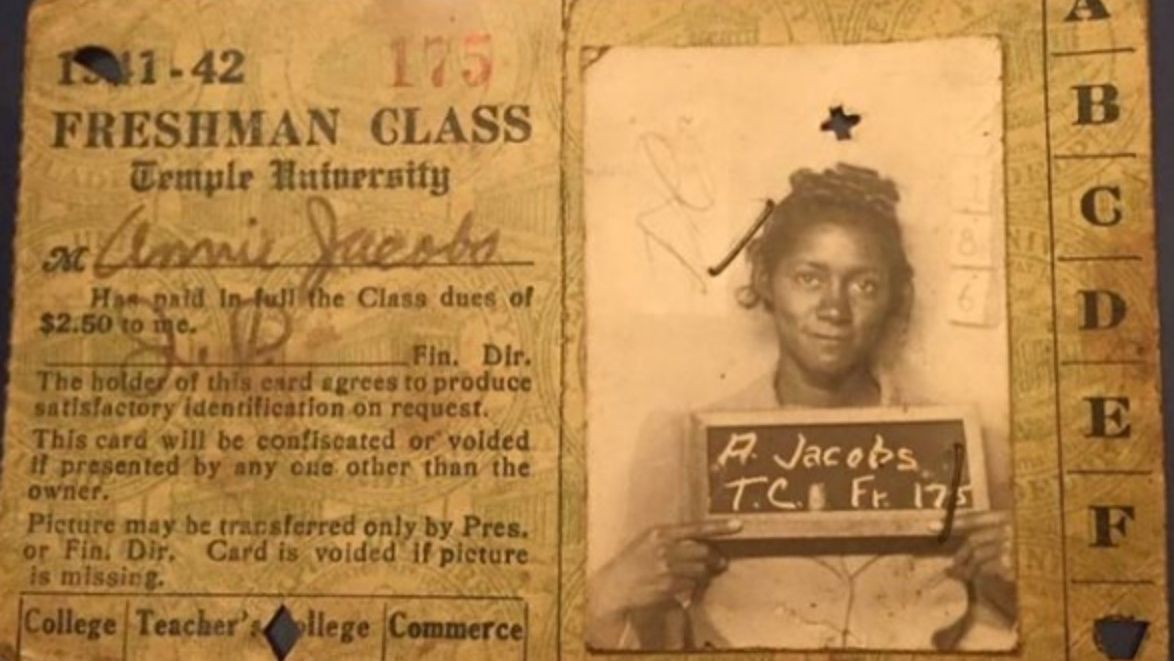 1941-42 175
FRESHMAN CLASS
Temple University
M Annie Jacobs
Has paid in full the Class dues of
$2.50 to me.
Fin. Dir.
The holder of this card agrees to produce
satisfactory identification on request.
This card will be confiscated or voided
if presented by any one other than the
owner.
Picture may be transferred only by Pres.
or Fin. Dir. Card is voided if picture
is missing.
College Teacher's College Commerce
1
8
6
A. Jacobs
T.C. Fr. 175
A
B
C
D
E
F